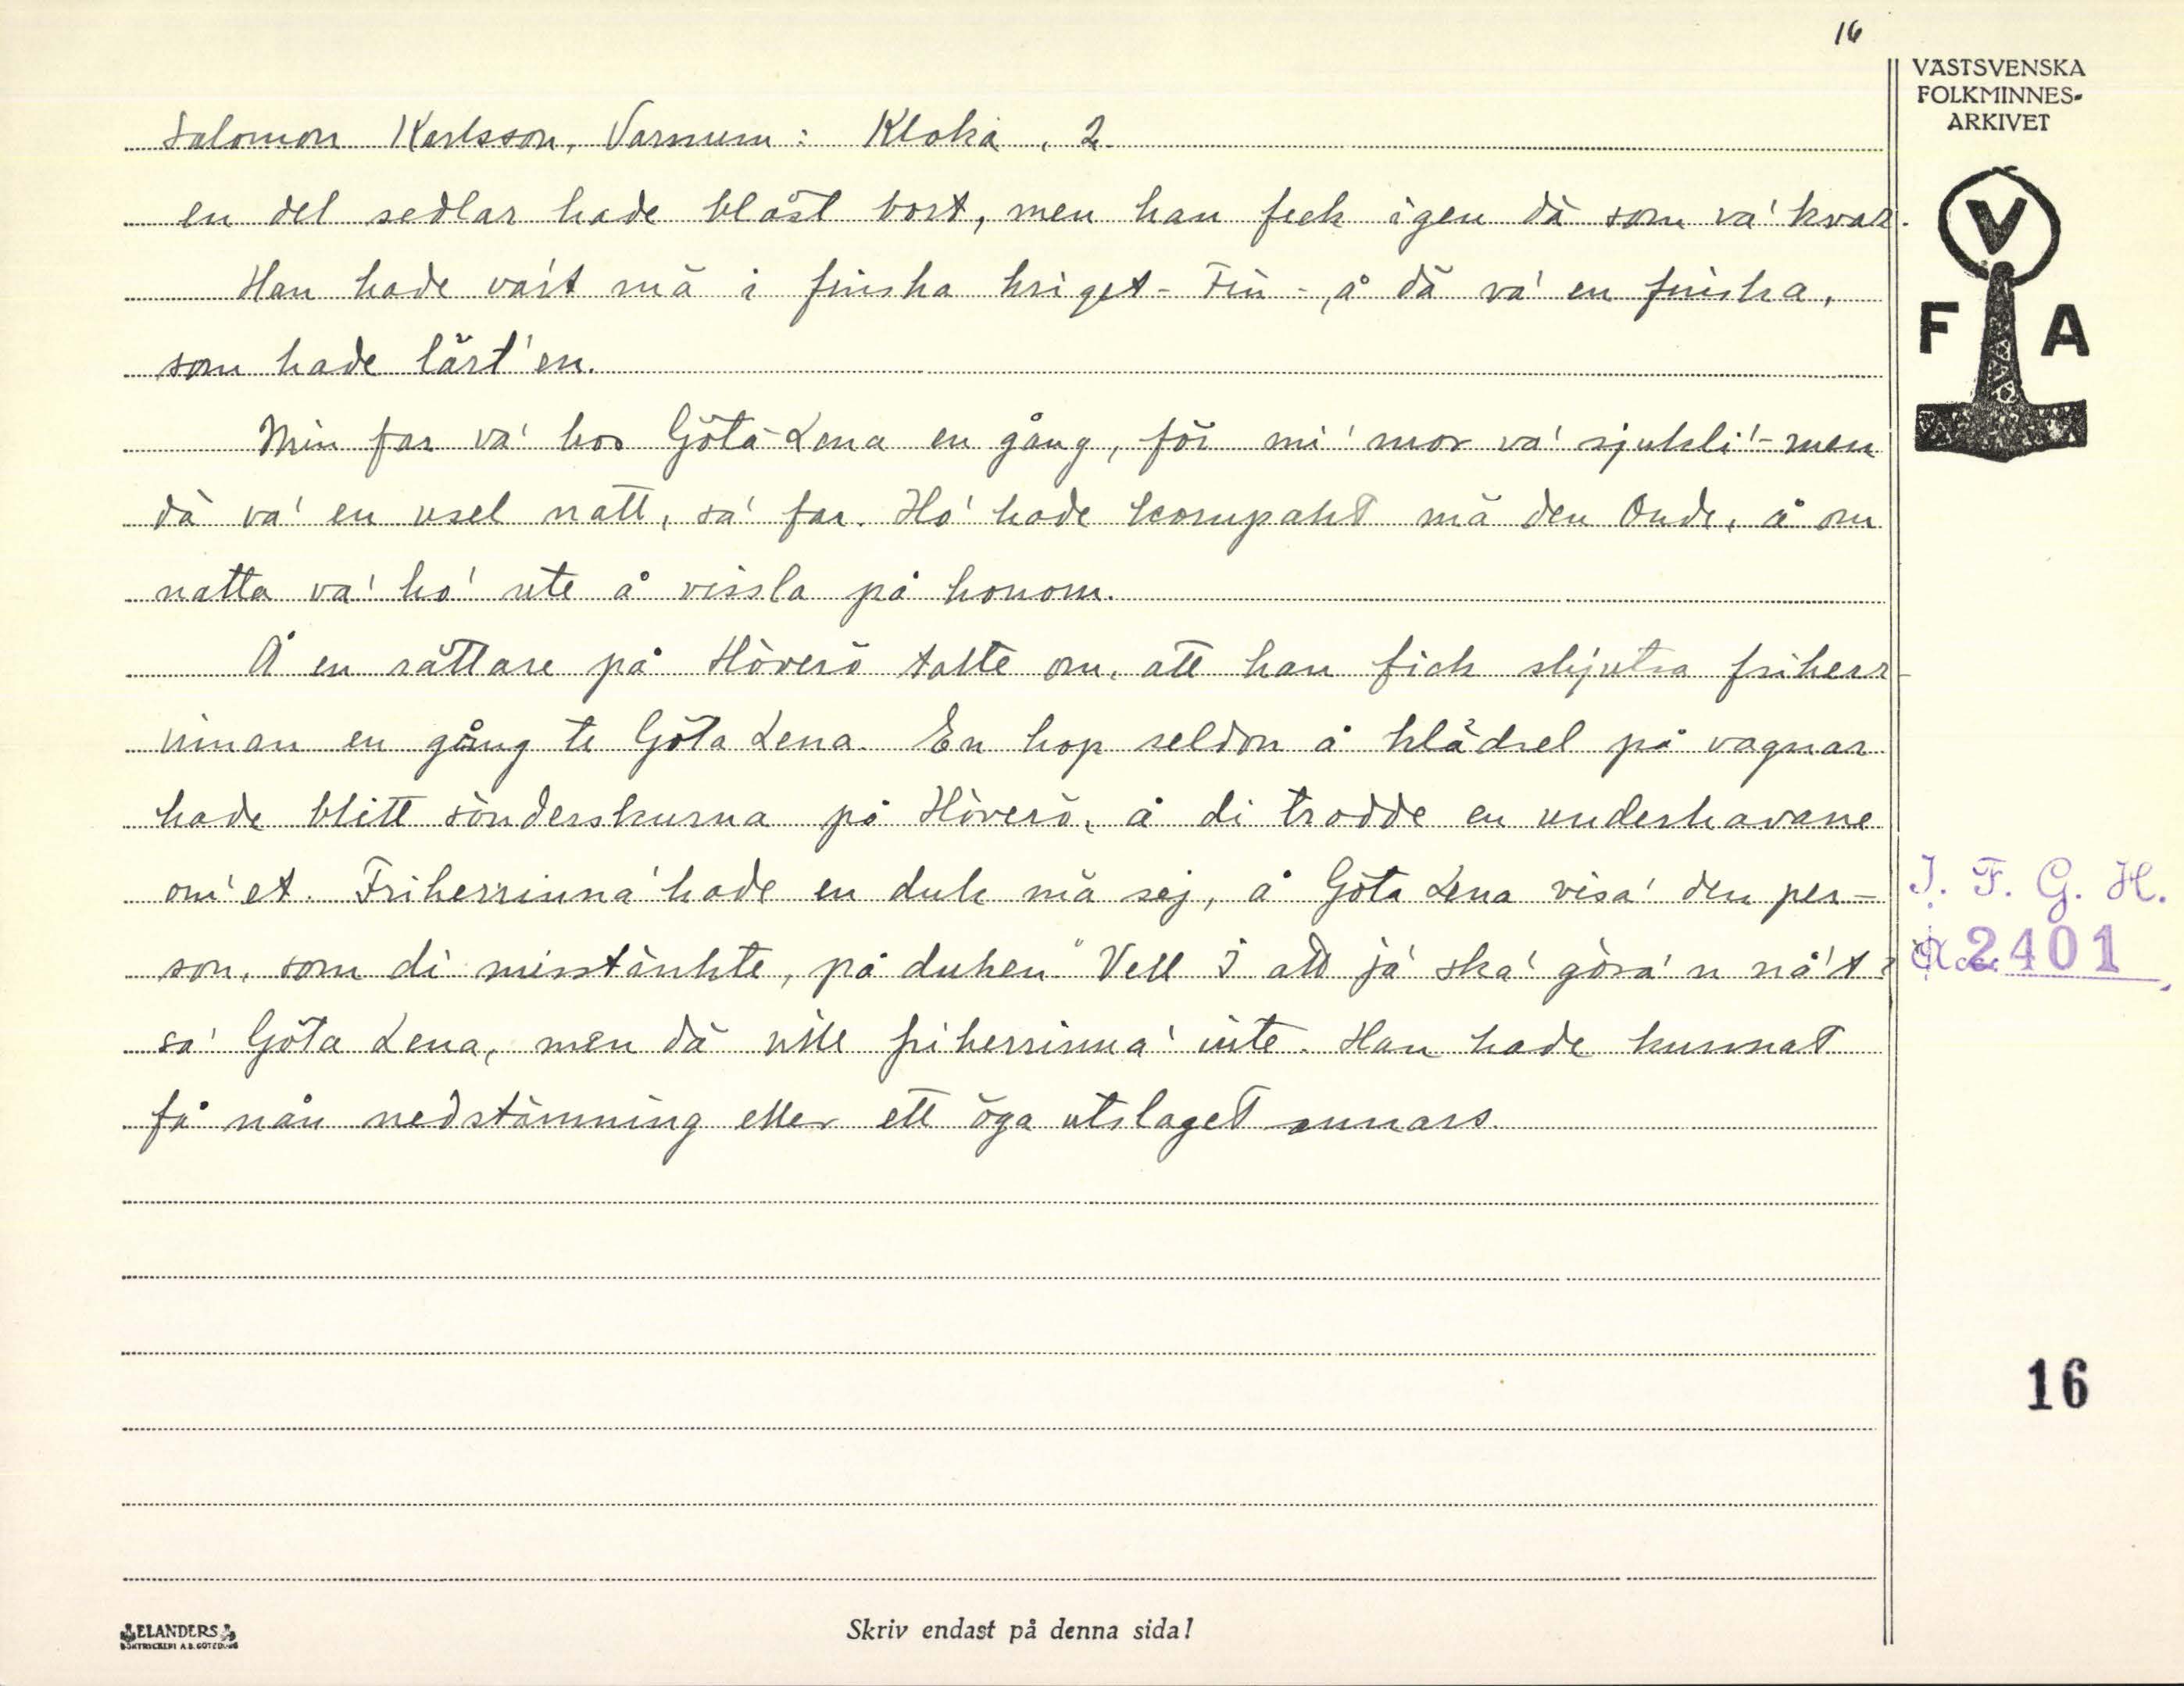 16
VÄSTSVENSKA
FOLKMINNES-
ARKIVET
V
F A
Salomon Karlsson, Varnum: Kloka, 2.
en del sedlar hade blåst bort, men han feck igen dä som va' kvar.
Han hade va'it mä i finska kriget - Fin -, å dä va' en finska,
som hade lärt'en.
Min far va' hos Göta-Lena en gång, för mi' mor va' sjukli' - men
dä va' en usel natt, sa' far. Ho' hade kompakt mä den Onde, å om
natta va' ho' ute å vissla på honom.
Å en rättare på Höverö talte om, att han fick skjutsa friherr-
innan en gång te Göta Lena. En hop seldon å klädsel på vagnar
hade blitt sönderskurna på Höverö, å di trodde en underhavane
om'et. Friherrinna' hade en duk mä sej, å Göta Lena visa' den per-
son, som di misstänkte, på duken. "Vell I att ja' ska' göra'n nå't?
sa' Göta Lena, men dä ville friherrinna' inte. Han hade kunnat
få nån nedstämning eller ett öga utslaget annars.
I. F. G. H.
2401
16
ELANDERS
BOKTRYCKERI A.B. GÖTEBORG
Skriv endast på denna sida!